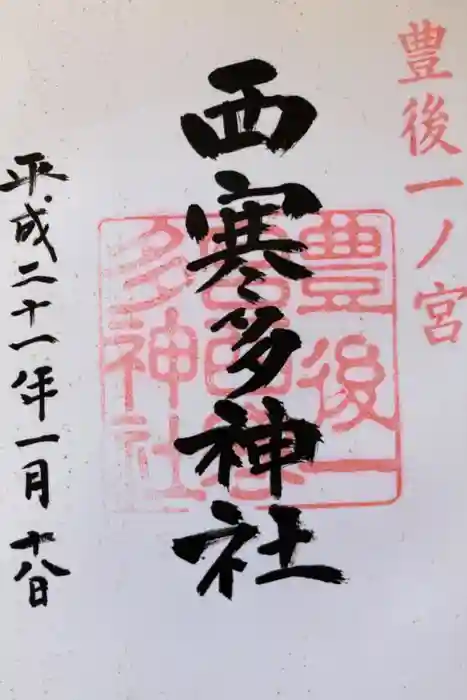 豊後一ノ宮
西寒多神社
豊後一
宮西寒
多神社
平成二十一年一月十八日